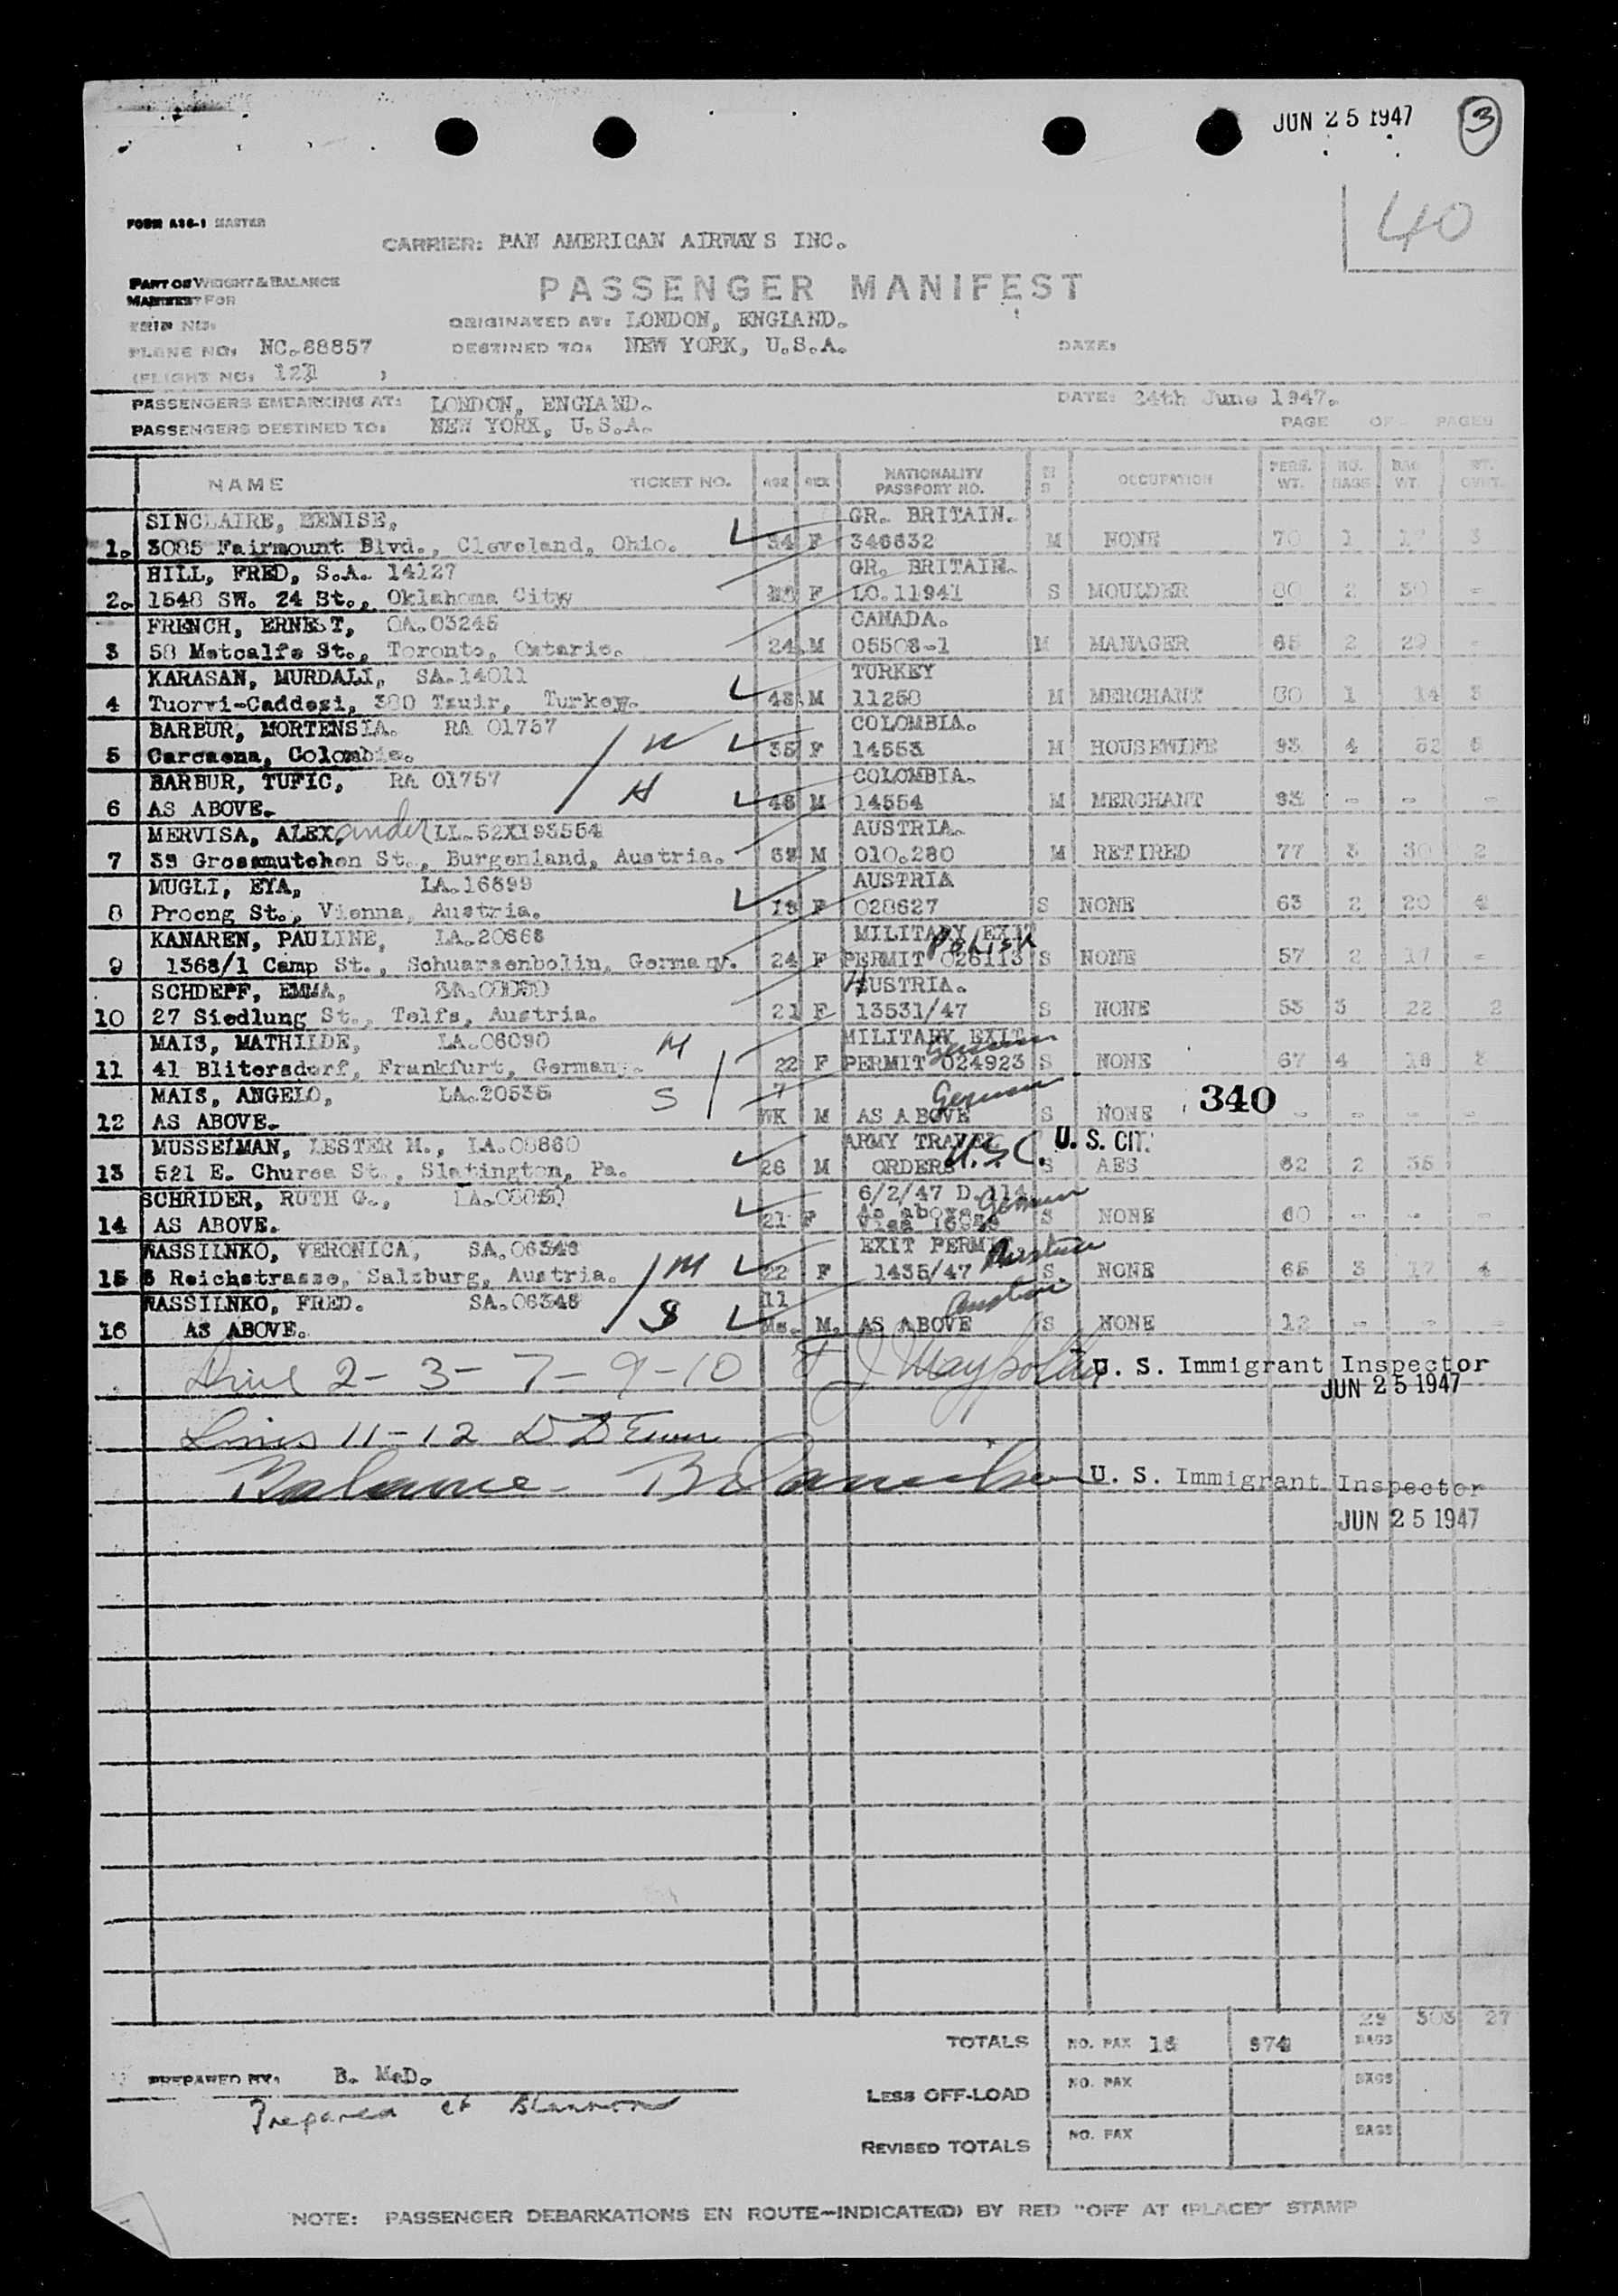 JUN 25 1947 3
40
FORM A36-1 MASTER
CARRIER: PAN AMERICAN AIRWAYS INC.
PART OF WEIGHT & BALANCE
MANIFEST FOR
PASSENGER MANIFEST
TRIP NO:
ORIGINATED AT: LONDON, ENGLAND.
PLANE NO: NC.88857
DESTINED TO: NEW YORK, U.S.A.
DATE:
(FLIGHT NO: 121 )
PASSENGERS EMBARKING AT: LONDON, ENGLAND.
DATE: 24th June 1947.
PASSENGERS DESTINED TO: NEW YORK, U.S.A.
PAGE OF PAGES
NAME TICKET NO. AGE SEX NATIONALITY PASSPORT NO. OCCUPATION PERS. WT. NO. BAGS BAG WT. WT. OVWT.
SINCLAIRE, DENISE, GR. BRITAIN.
1. 3085 Fairmount Blvd., Cleveland, Ohio. 34 F 346632 M NONE 70 1 17 3
HILL, FRED, S.A. 14127 GR. BRITAIN.
2. 1548 SW. 24 St., Oklahoma City F LO.11941 S MOULDER 80 2 30 -
FRENCH, ERNEST, OA.03245 CANADA.
3 58 Metcalfe St., Toronto, Ontario. 24 M 05508-1 M MANAGER 65 2 29 -
KARASAN, MURDALI, SA.14011 TURKEY
4 Tuorvi-Caddesi, 380 Tzuir, Turkey. 43 M 11258 M MERCHANT 80 1 14 3
BARBUR, MORTENSIA. RA 01757 COLOMBIA.
5 Carcaena, Colombia. W 35 F 14553 M HOUSEWIFE 93 4 52 5
BARBUR, TUFIC, RA 01757 COLOMBIA.
6 AS ABOVE. H 46 M 14554 M MERCHANT 93 - - -
MERVISA, ALEXander LL.52X193554 AUSTRIA.
7 39 Grossmutchen St., Burgenland, Austria. M 010.280 M RETIRED 77 3 30 2
MUGLI, EYA, LA.16899 AUSTRIA
8 Proeng St., Vienna, Austria. F 028627 S NONE 63 2 20 4
KANAREN, PAULINE, LA.20868 MILITARY EXIT Polish
9 1368/1 Camp St., Schuarsenbolin, Germany. 24 F PERMIT 026113 S NONE 57 2 17 -
SCHDEPF, EMMA, AUSTRIA.
10 27 Siedlung St., Telfs, Austria. 21 F 13531/47 S NONE 53 3 22 2
MAIS, MATHILDE, LA.06090 M MILITARY EXIT German
11 41 Blitersdorf, Frankfurt, Germany. 22 F PERMIT 024923 S NONE 67 4 18
MAIS, ANGELO, LA.20535 S 7 German
12 AS ABOVE. WK M AS ABOVE S NONE 340 - - - -
MUSSELMAN, LESTER H., LA.08860 ARMY TRAVEL U.S.C. U. S. CIT.
13 521 E. Churea St., Slatington, Pa. 26 M ORDERS S AES 82 2 35
SCHRIDER, RUTH G., 6/2/47 D.114
14 AS ABOVE. 21 F As above Visa German S NONE 60 - - -
WASSILNKO, VERONICA, SA.06346 EXIT PERMIT
15 6 Reichstrasse, Salzburg, Austria. M 22 F 1435/47 Austria S NONE 65 3 17 4
WASSILNKO, FRED. SA.06346 11 Austria
16 AS ABOVE. S Ms. M. AS ABOVE S NONE 12 - - -
Line 2-3-7-9-10 U. S. Immigrant Inspector
JUN 25 1947
Lines 11-12
Balance U. S. Immigrant Inspector
JUN 25 1947
29 303 27
TOTALS NO. PAX 16 974 BAGS
PREPARED BY: B. McD.
LESS OFF-LOAD NO. PAX BAGS
Prepared at Shannon
REVISED TOTALS NO. PAX BAGS
NOTE: PASSENGER DEBARKATIONS EN ROUTE-INDICATE(D) BY RED "OFF AT (PLACE)" STAMP